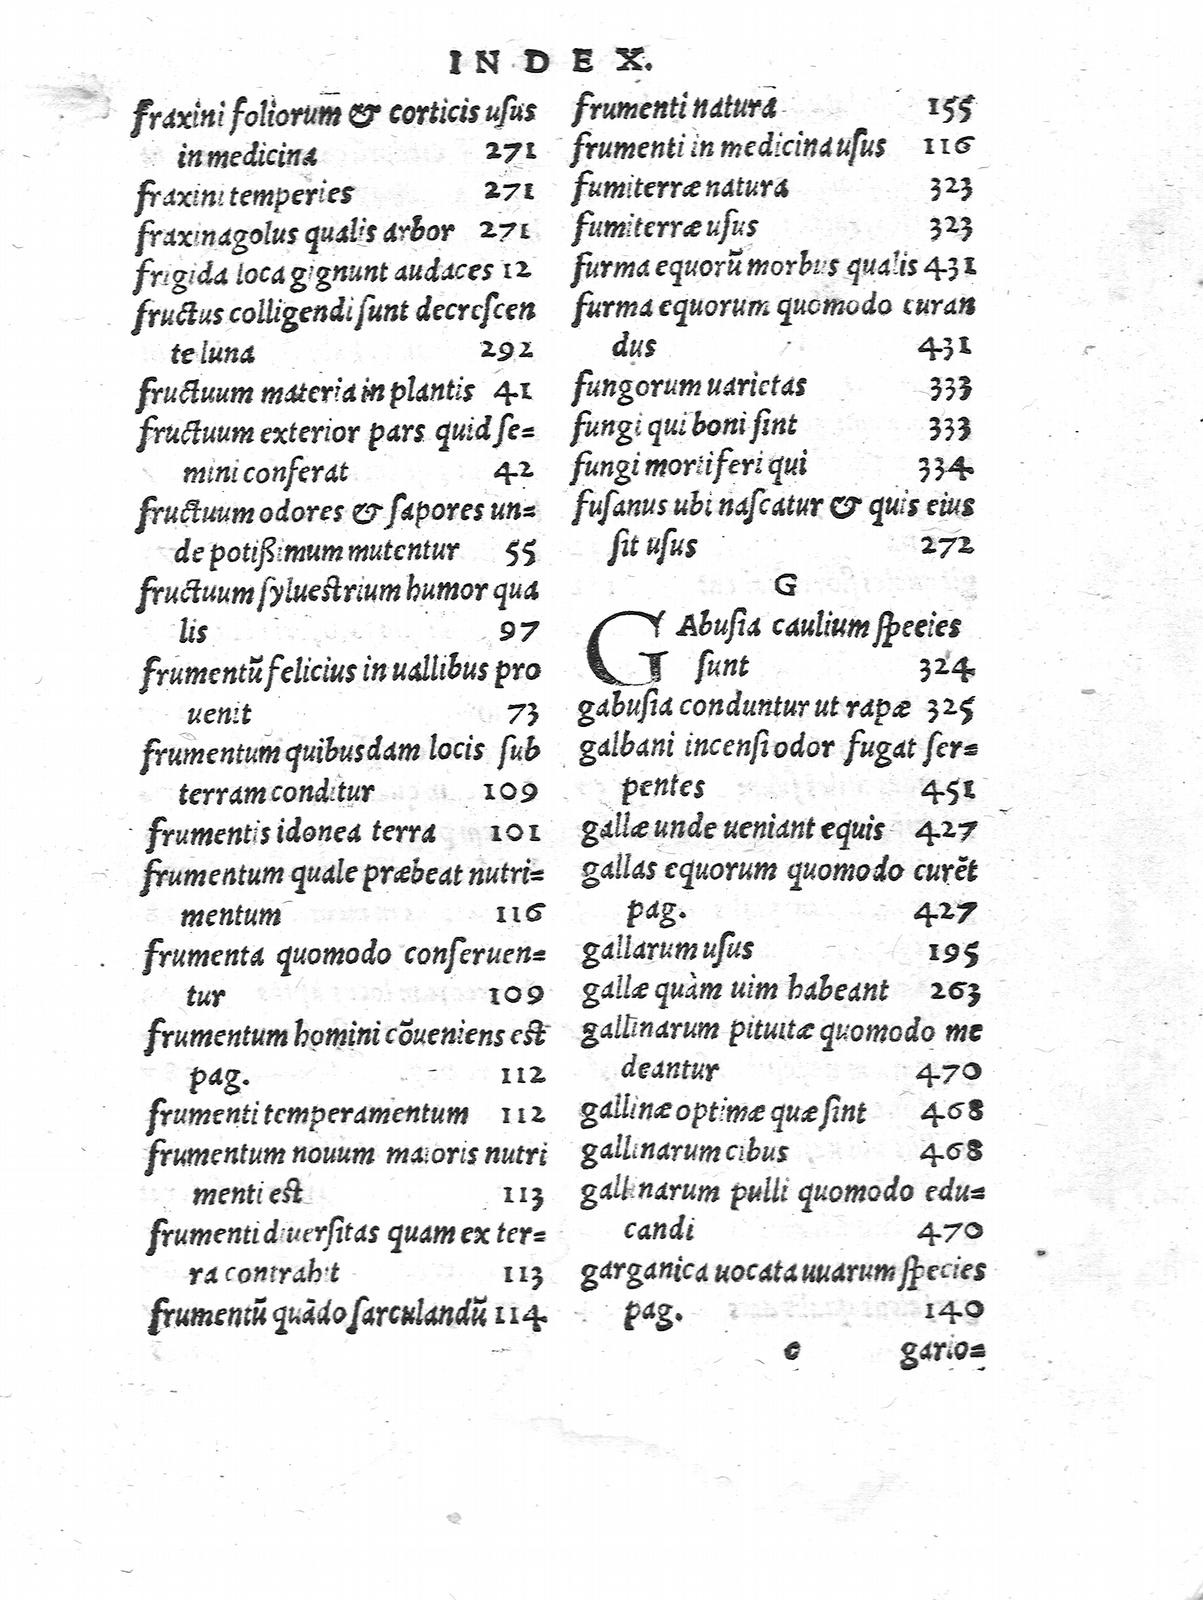 INDEX.
fraxini foliorum & corticis uſus
in medicina 271
fraxini temperies 271
fraxinagolus qualis arbor 271
frigida loca gignunt audaces 12
fructus colligendi ſunt decreſcen
te luna 292
fructuum materia in plantis 41
fructuum exterior pars quid ſe=
mini conferat 42
fructuum odores & ſapores un=
de potißimum mutentur 55
fructuum ſylueſtrium humor qua
lis 97
frumentũ felicius in uallibus pro
uenit 73
frumentum quibusdam locis ſub
terram conditur 109
frumentis idonea terra 101
frumentum quale præbeat nutri=
mentum 116
frumenta quomodo conſeruen=
tur 109
frumentum homini cõueniens eſt
pag. 112
frumenti temperamentum 112
frumentum nouum maioris nutri
menti eſt 113
frumenti diuerſitas quam ex ter=
ra contrahit 113
frumentũ quãdo ſarculandũ 114
frumenti natura 155
frumenti in medicina uſus 116
fumiterræ natura 323
fumiterræ uſus 323
furma equorũ morbus qualis 431
furma equorum quomodo curan
dus 431
fungorum uarietas 333
fungi qui boni ſint 333
fungi mortiferi qui 334
fuſanus ubi naſcatur & quis eius
ſit uſus 272
G
GAbuſia caulium ſpecies
ſunt 324
gabuſia conduntur ut rapæ 325
galbani incenſi odor fugat ſer=
pentes 451
gallæ unde ueniant equis 427
gallas equorum quomodo curẽt
pag. 427
gallarum uſus 195
gallæ quàm uim habeant 263
gallinarum pituitæ quomodo me
deantur 470
gallinæ optimæ quæ ſint 468
gallinarum cibus 468
gallinarum pulli quomodo edu=
candi 470
garganica uocata uuarum ſpecies
pag. 140
c gario=